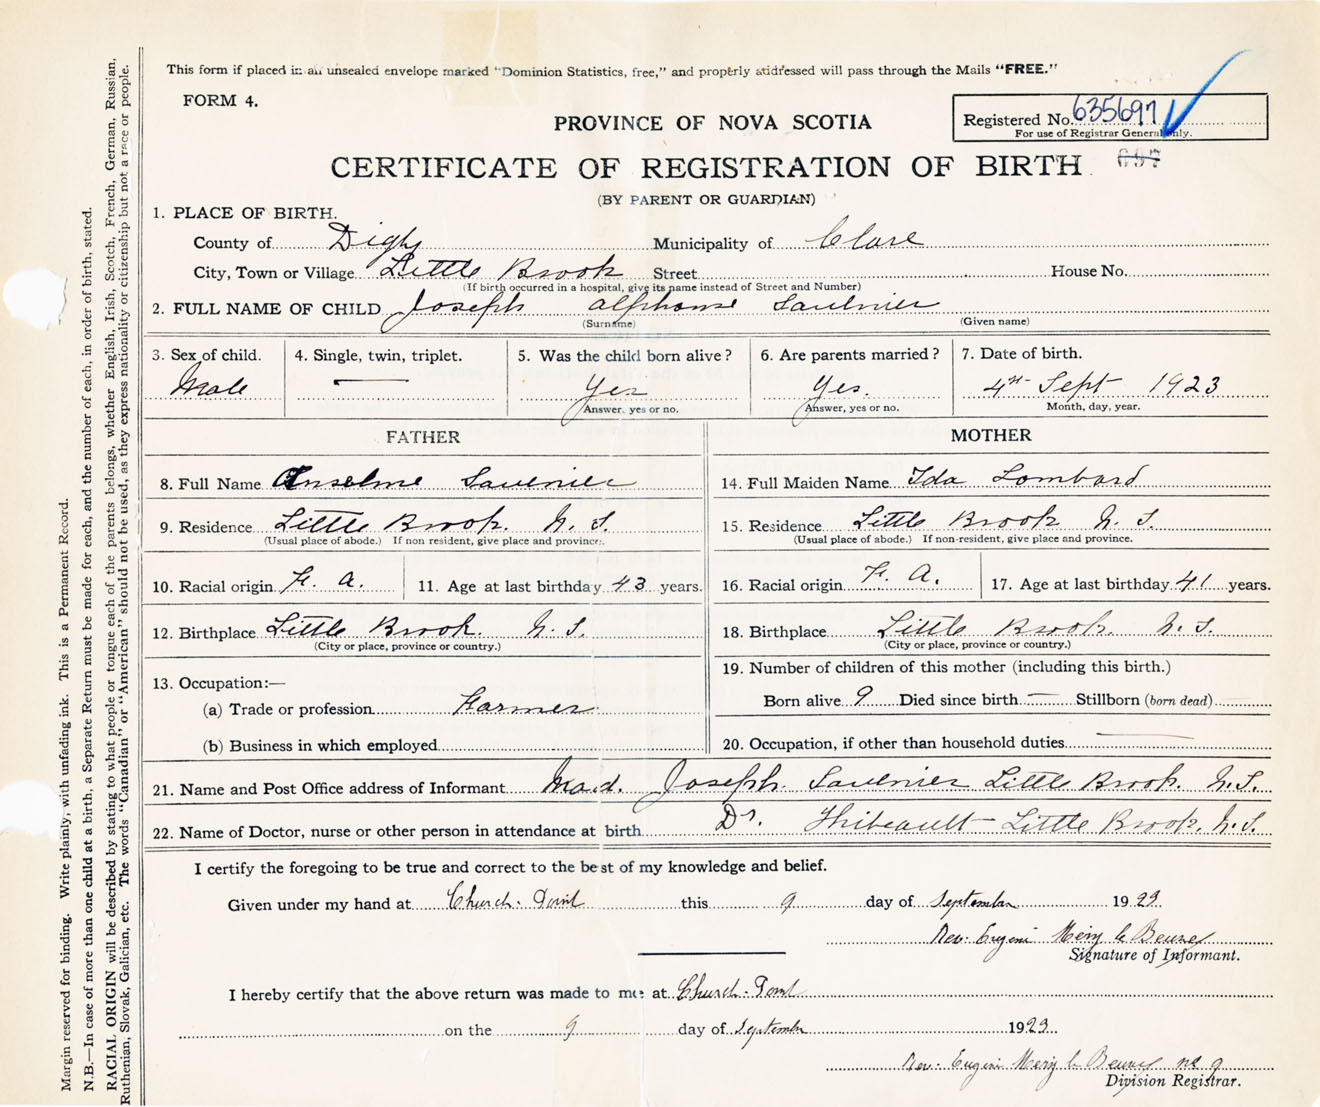 This form if placed in an unsealed envelope marked "Dominion Statistics, free," and properly addressed will pass through the Mails "FREE."
FORM 4.
Registered No. 635697
For use of Registrar General only.
697
PROVINCE OF NOVA SCOTIA
CERTIFICATE OF REGISTRATION OF BIRTH
(BY PARENT OR GUARDIAN)
1. PLACE OF BIRTH.
County of Digby Municipality of Clare
City, Town or Village Little Brook Street House No.
(If birth occurred in a hospital, give its name instead of Street and Number)
2. FULL NAME OF CHILD Joseph Alphonse Saulnier
(Surname) (Given name)
3. Sex of child. 4. Single, twin, triplet. 5. Was the child born alive? 6. Are parents married? 7. Date of birth.
Male — Yes Yes. 4th Sept 1923
Answer, yes or no. Answer, yes or no. Month, day, year.
FATHER MOTHER
8. Full Name Anselme Saulnier 14. Full Maiden Name Ida Lombard
9. Residence Little Brook. N. S. 15. Residence Little Brook N. S.
(Usual place of abode.) If non resident, give place and province. (Usual place of abode.) If non-resident, give place and province.
10. Racial origin F. A. 11. Age at last birthday 43 years. 16. Racial origin F. A. 17. Age at last birthday 41 years.
12. Birthplace Little Brook. N. S. 18. Birthplace Little Brook. N. S.
(City or place, province or country.) (City or place, province or country.)
19. Number of children of this mother (including this birth.)
13. Occupation:—
Born alive 9 Died since birth — Stillborn (born dead)
(a) Trade or profession Farmer
(b) Business in which employed 20. Occupation, if other than household duties —
21. Name and Post Office address of Informant Mad. Joseph Saulnier Little Brook. N. S.
22. Name of Doctor, nurse or other person in attendance at birth Dr. Thibeault Little Brook. N. S.
I certify the foregoing to be true and correct to the best of my knowledge and belief.
Given under my hand at Church-Point this 9 day of September 1923
Rev. Eugeni
Signature of Informant.
I hereby certify that the above return was made to me at Church-Point
on the 9 day of September 1923
Rev. Eugeni
Division Registrar.
Margin reserved for binding. Write plainly, with unfading ink. This is a Permanent Record.
N.B.—In case of more than one child at a birth, a Separate Return must be made for each, and the number of each, in order of birth, stated.
RACIAL ORIGIN will be described by stating to what people or tongue each of the parents belongs, whether English, Irish, Scotch, French, German, Russian,
Ruthenian, Slovak, Galician, etc. The words "Canadian" or "American" should not be used, as they express nationality or citizenship but not a race or people.